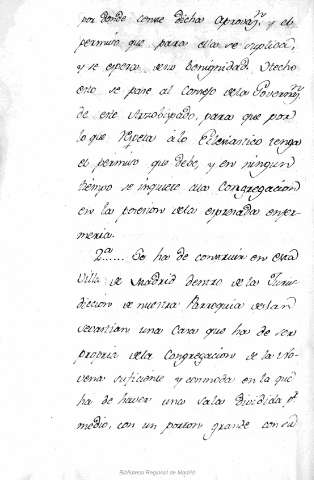 por donde conste dicha Aprovaz.ⁿ y el
permiso que para ella se suplica,
y se espera de su benignidad. Y hecho
esto se pase al Consejo de la Governaz.ⁿ
de este Arzobispado, para que por
lo que respeta à lo Eclesiastico tenga
el permiso que debe, y en ningun
tiempo se inquiete a la Congregacion
en la posesion de la expresada enfer-
meria.
2.ª...... Se ha de construir en esta
Villa de Madrid dentro de la Juris-
diccion de nuestra Parroquia de San
Sevastian una Casa que ha de ser
propria de la Congregacion de la No-
vena suficiente y comoda en la que
ha de haver una sala dividida p.r
medio, con un porton grande con su
Biblioteca Regional de Madrid